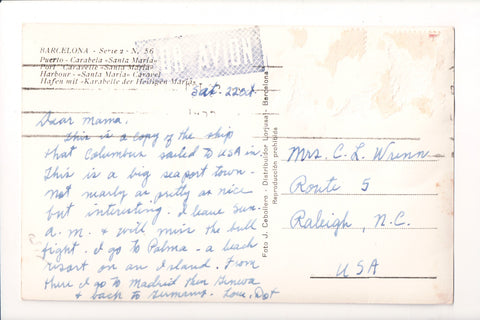 BARCELONA - Serie 2 - N. 56
Puerto - Carabela «Santa María»
Port - Caravelle «Santa María»
Harbour - «Santa María» Caravel
Hafen mit «Karabelle der Heiligen María»
PAR AVION
Sat. 22
Dear Mama,
This is a copy of the ship
that Columbus sailed to USA in.
This is a big seaport town.
Not nearly as pretty as nice
but interesting. I leave Sun.
a.m. & will miss the bull
fight. I go to Palma - a beach
resort on an Island. From
there I go to Madrid then Geneva
& back to Germany. Love, Dot
Foto J. Cebollero - Distribuidor - Barcelona
Reproducción prohibida
Mrs. C. L. Wrenn
Route 5
Raleigh, N.C.
USA